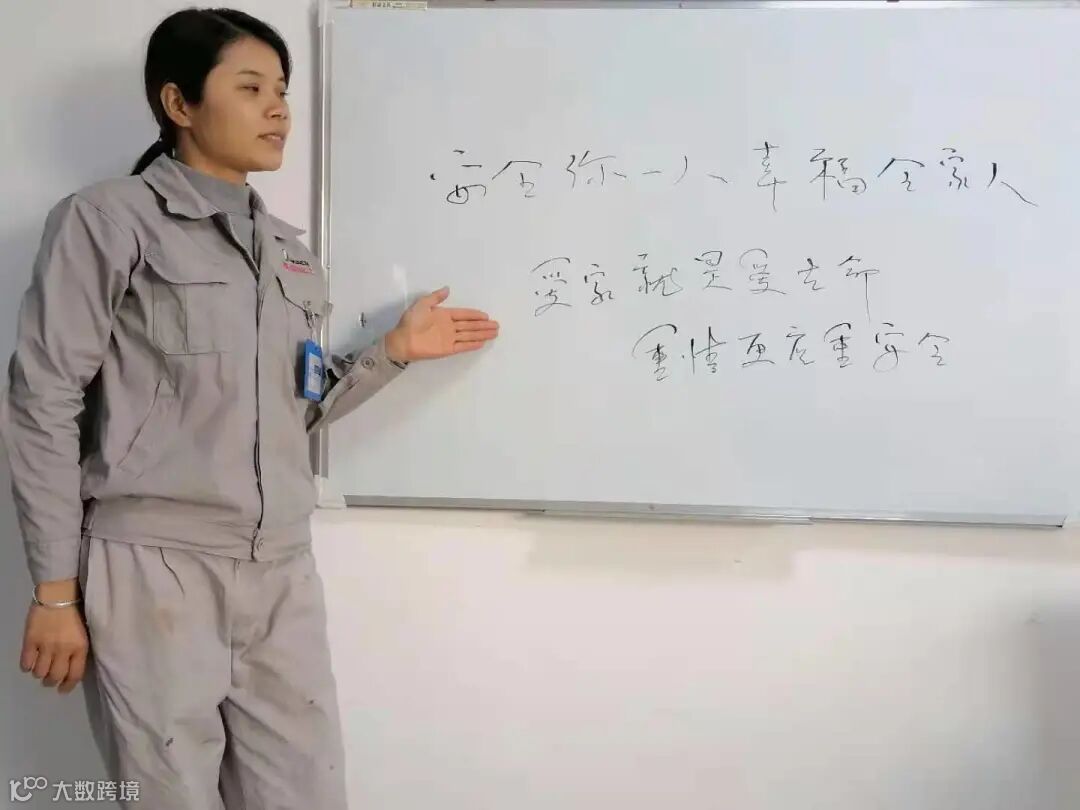 安全你一人幸福全家人
爱家就是爱生命
重情更应重安全
大数跨境